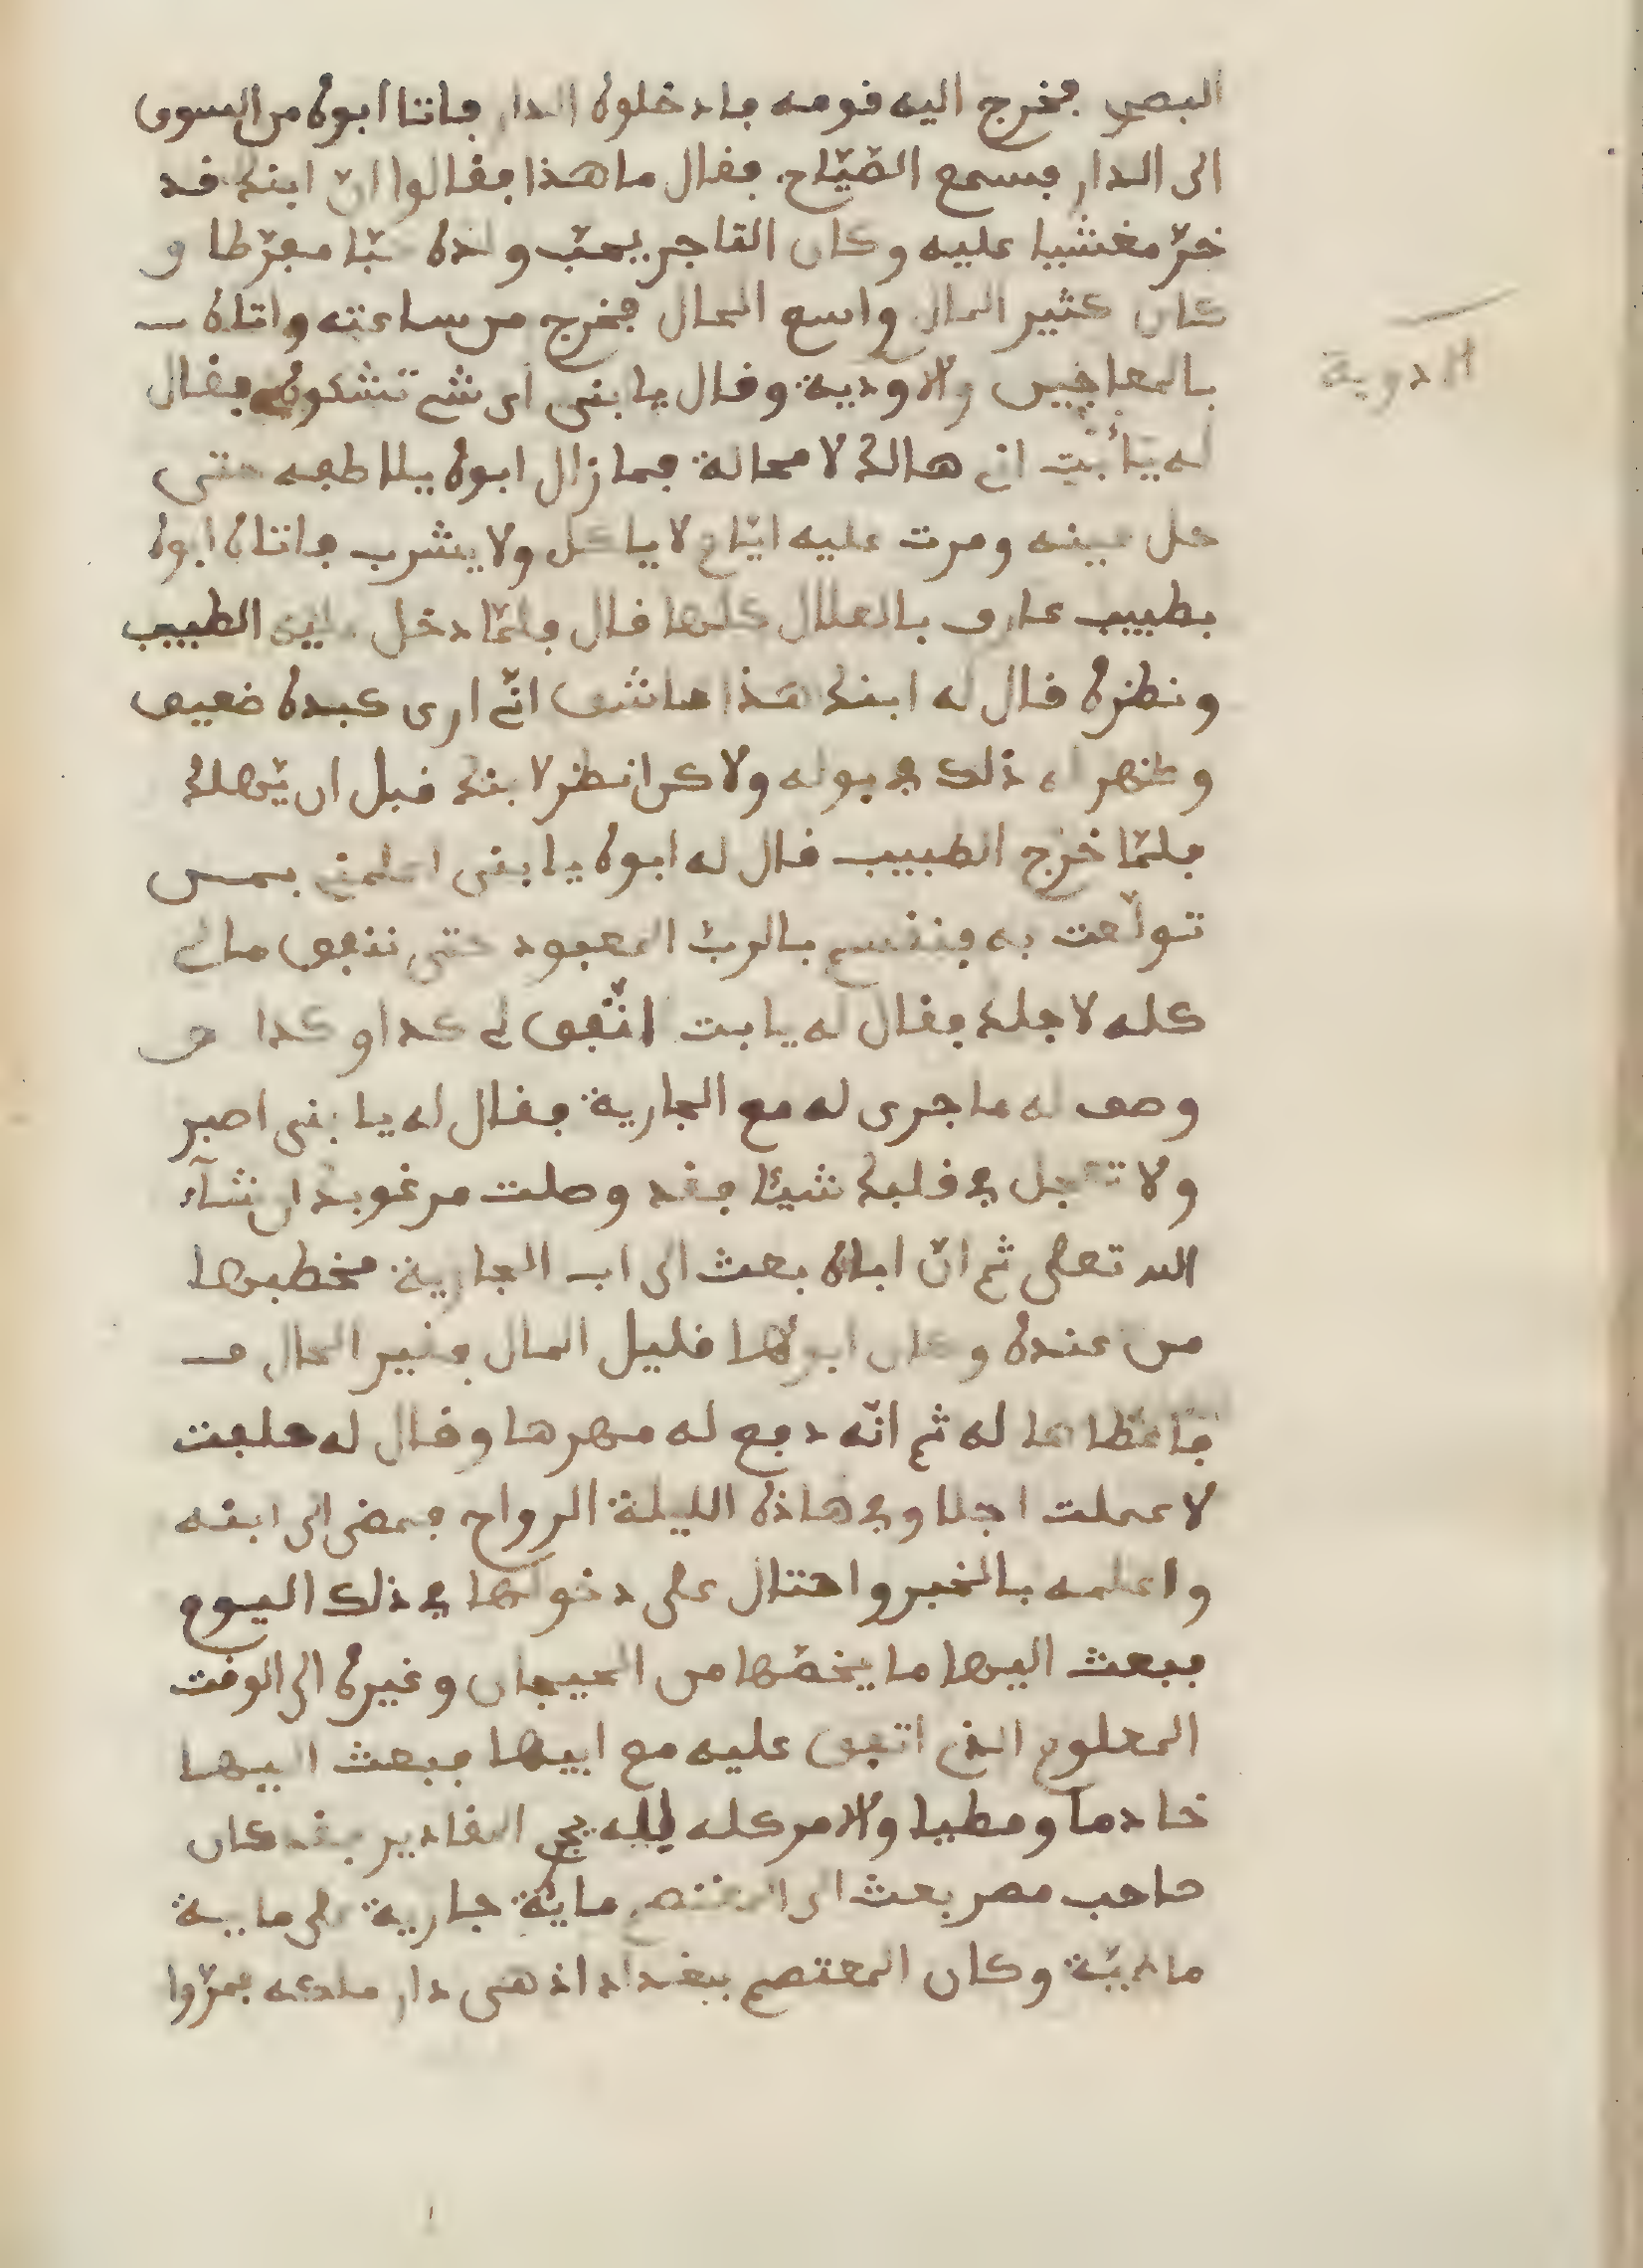 البصر فخرج اليه قومه فادخلوه الدار فاتا ابوه من السوق
الى الدار فسمع الصّيّاح فقال ما هذا فقالوا انّ ابنك قد
خرّ مغشيا عليه وكان التاجر يحبّ ولده حبّا مفرّطا و
كان كثير المال واسع الحال فخرج من ساعته واتاه
بالمعاجين والاودية وقال يا بنى اى شئ تشكوه فقال
له يا أبت انى هالك لا محالة فما زال ابوه يلاطفه حتى
حل عينه ومرت عليه ايّام لا ياكل ولا يشرب فاتاه ابوه
بطبيب عارف بالعلال كلها قال فلمّا دخل عليه الطبيب
ونظره قال له ابنك هذا عاشق انّى ارى كبده ضعيف
وظهر له ذلك في بوله ولاكن انظر لابنك قبل ان يّهلك
فلمّا خرج الطبيب قال له ابوه يا بنى اعلمنى بمن
تولّعت به فنقسم بالربّ المعبود حتى ننفق مالى
كله لاجلك فقال له يا بت انّفق لى كدا وكدا و
وصف له ما جرى له مع الجارية فقال له يا بنى اصبر
ولا تعجل في قلبك شيئا فقد وصلت مرغوبك ان شآء
الله تعلى ثم انّ اباه بعث الى اب الجارية فخطبها
من عنده وكان ابوها قليل المال فقير الحال ف
فاعطاها له ثم انّه دفع له مهرها وقال له حلفت
لا عملت اجلا وفي هاذه الليلة الرواح فمضى الى ابنه
واعلمه بالخبر واحتال على دخولها في ذلك اليوم
فبعث اليها ما يخصّها من التيجان وغيره الى الوقت
المعلوم الذى اتفق عليه مع ابيها فبعث اليها
خادما ومطيا والامر كله لله فى المقادير فقد كان
صاحب مصر بعث الى المعتصم ماية جارية على ماية
مادبّة وكان المعتصم ببغداد اذ هى دار ملكه فمرّوا
الادوية